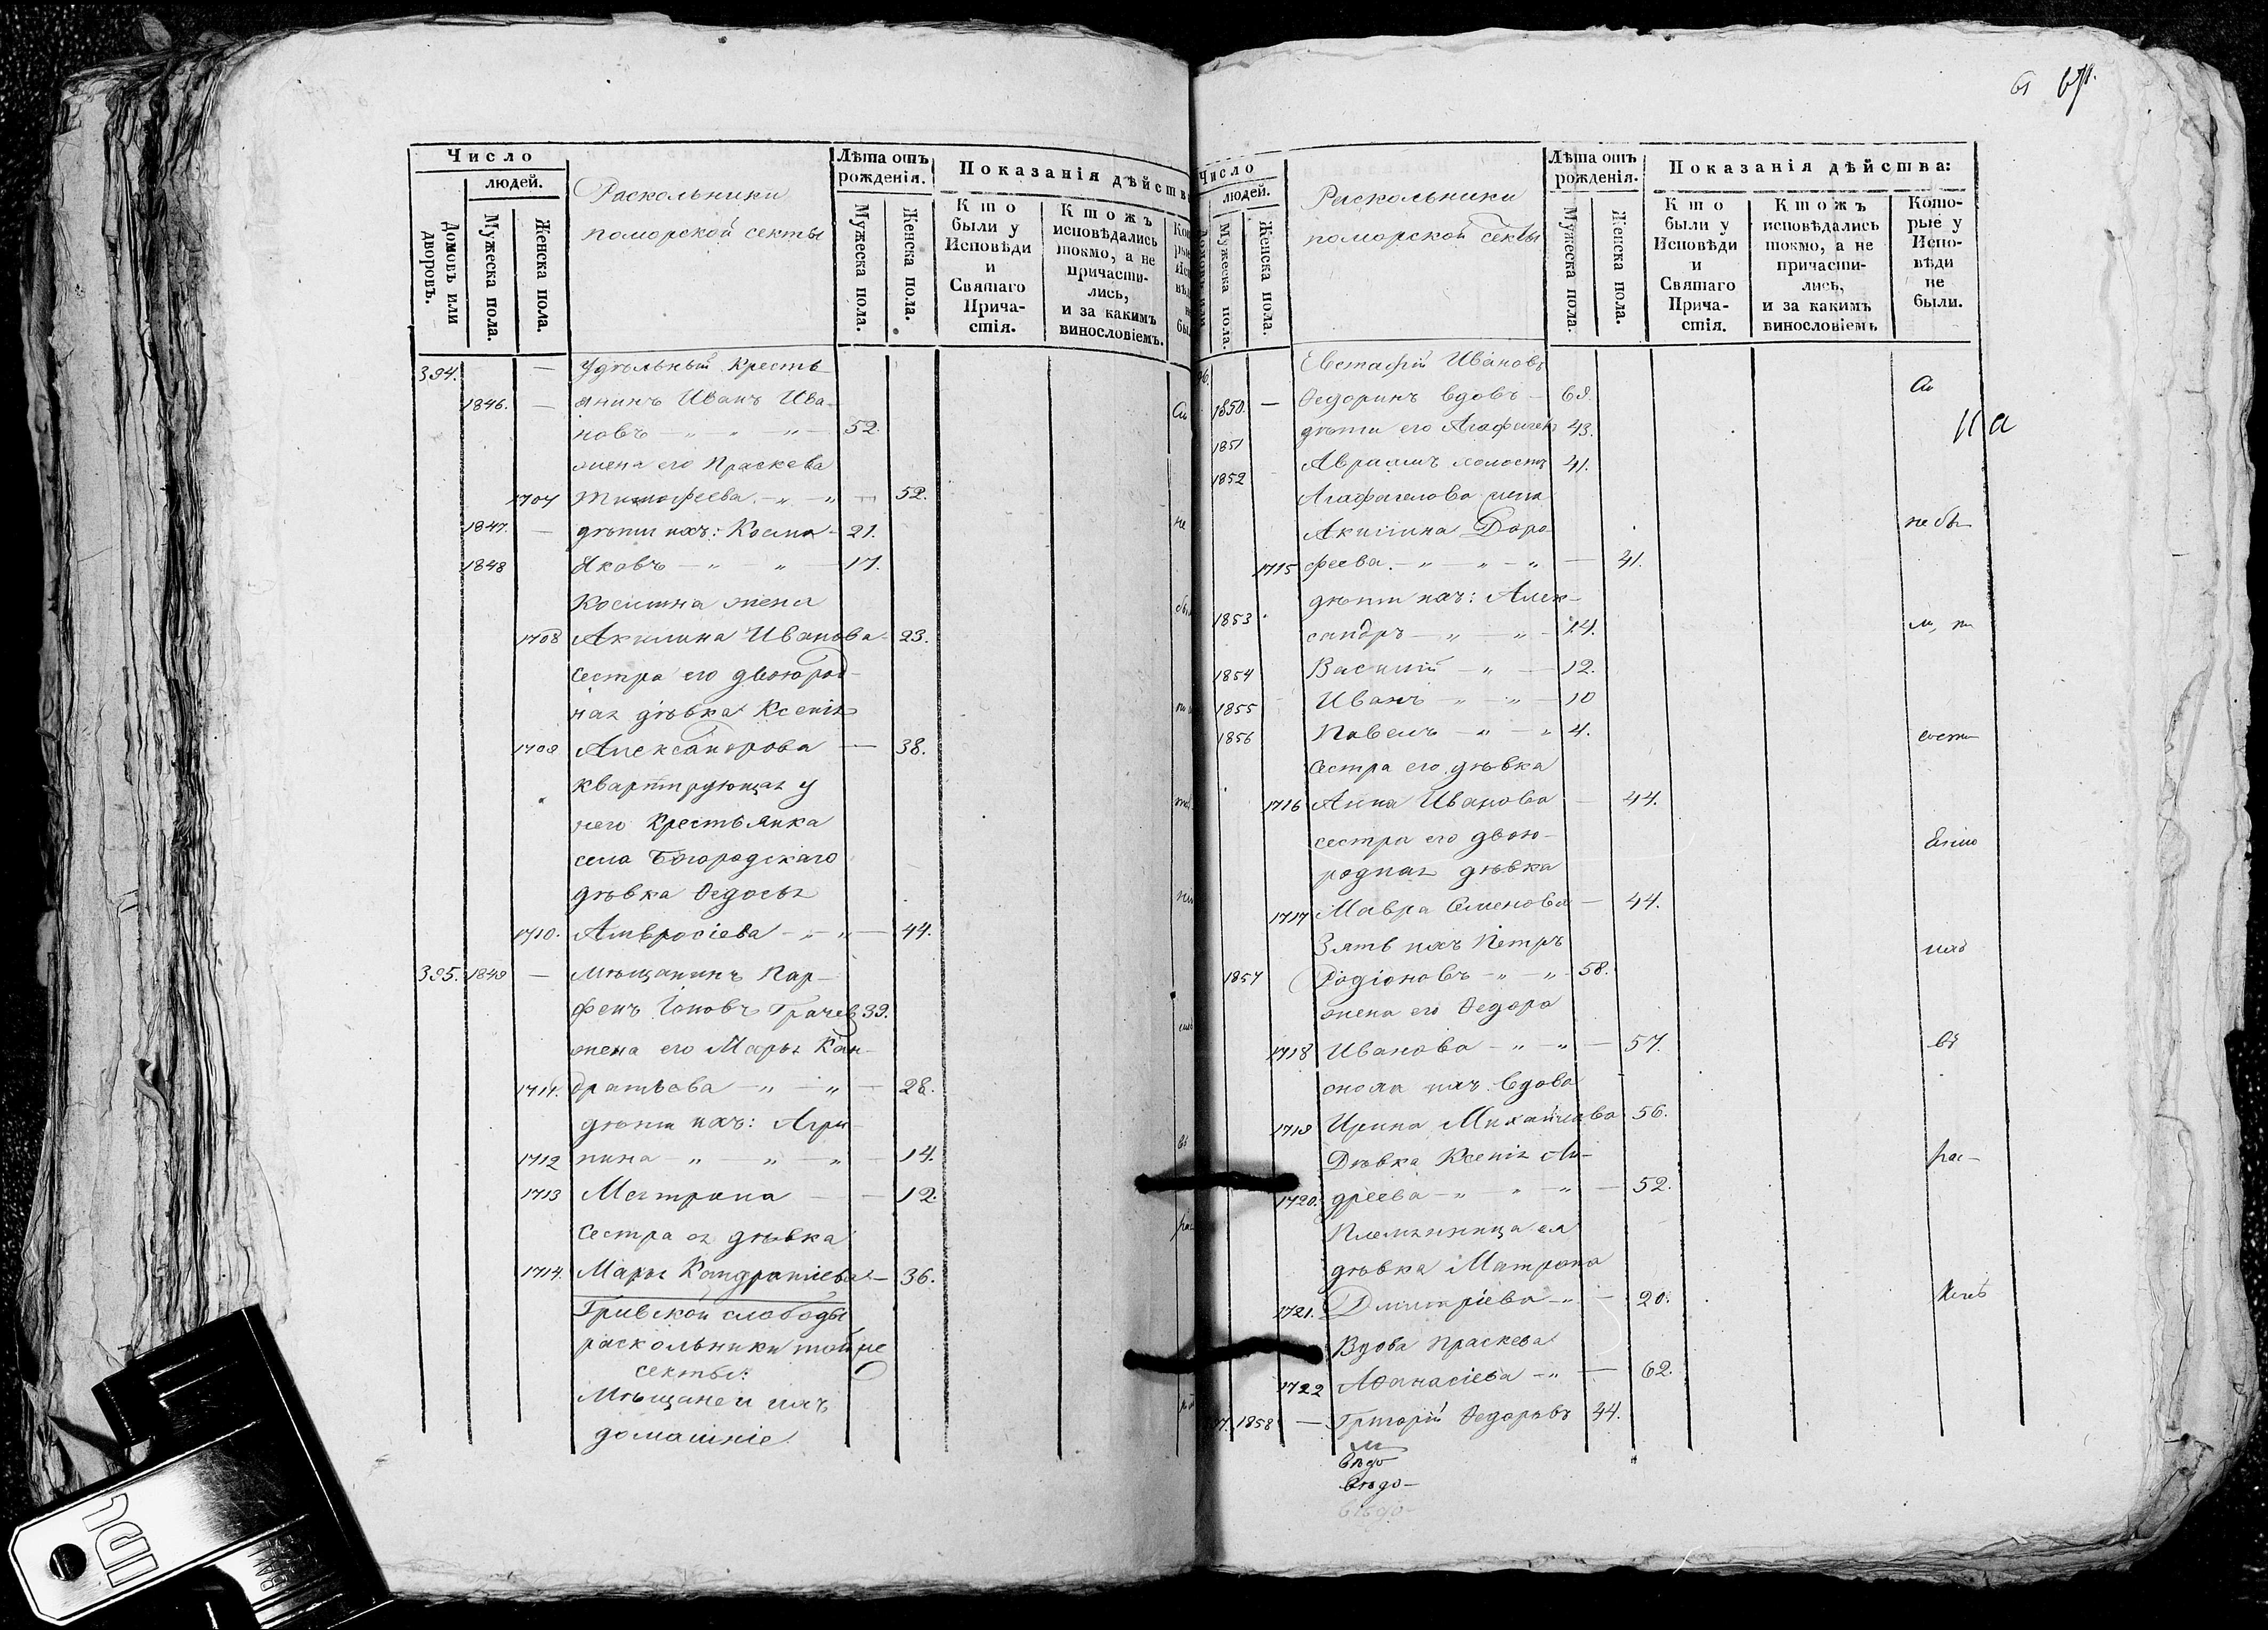 Число
людей.
Домовъ или дворовъ.
Мужеска пола.
Женска пола.
Раскольники
поморской секты
Лѣта отъ рожденія.
Мужеска пола.
Женска пола.
Показанія дѣйств
Кто были у Исповѣди и Святаго Причастія.
Ктожъ исповѣдались токмо, а не причастились, и за какимъ винословіемъ.
394. — Удѣльный Кресть-
1846. — янинъ Иванъ Ива-
новъ — " — " — 52.
жена его Праскева
1707 Тимофеева — " — " — 52.
1847. — дѣти ихъ: Косма — 21.
1848 Яковъ — " — " — 17.
Космина жена
1708 Акилина Иванова — 23.
Сестра его двоюрод-
ная дѣвка Ксенія
1709 Александрова — 38.
квартирующая у
него Крестьянка
села Богородскаго
дѣвка Ѳедосья
1710. Амвросіева — " — " — 44.
395. 1849 — Мѣщанинъ Пар-
фенъ Іоновъ Грачев 39.
жена его Марья Кон-
1711. дратьева — " — " — 28.
дѣти ихъ: Агри-
1712 пина — " — " — " — 14.
1713 Матрона — 12.
Сестра ея дѣвка
1714. Марья Кондратьева — 36.
Гривской слободы
раскольники той же
секты:
Мѣщане и ихъ
домашніе.
61
Число
людей.
Мужеска пола.
Женска пола.
Раскольники
поморской секты
Лѣта отъ рожденія.
Мужеска пола.
Женска пола.
Показанія дѣйства:
Кто были у Исповѣди и Святаго Причастія.
Ктожъ исповѣдались токмо, а не причастились, и за какимъ винословіемъ
Которые у Исповѣди не были.
Евстафій Ивановъ
1850. — Ѳедоринъ вдовъ — 69.
1851 дѣти его Агафагелъ 43.
1852 Авраамъ холостъ 41.
Агафагелова жена
Акилина Доро-
1715 феева. — " — " — " — 41.
дѣти ихъ: Алек-
1853 сандръ — " — " — 14.
1854 Василій — " — 12.
1855 Иванъ — " — " — 10
1856 Павелъ — " — " 4.
Сестра его дѣвка
1716 Анна Иванова — 44.
сестра его двою-
родная дѣвка
1717 Мавра Семенова — 44.
Зять ихъ Петръ
1857 Родіоновъ — " — " — 58.
жена его Ѳедора
1718 Иванова — " — " — 57.
сноха ихъ вдова
1719 Ирина Михайлова 56.
Дѣвка Ксенія Ан-
1720. дреева — " — " — " — 52.
Племянница ея
дѣвка Матрона
1721. Дмитріева — " — 20.
Вдова Праскева
1722 Аѳанасіева — " — 62.
1858 — Григорій Ѳедоровъ 44.
не бы-
состо-
въ
рас-
вѣдо
вѣдо-
вѣдо-